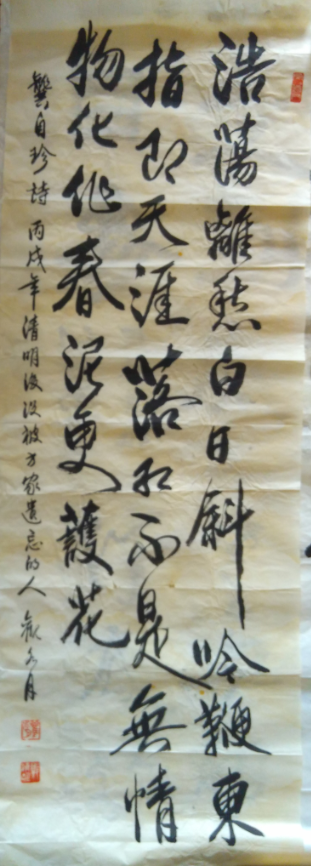 浩蕩離愁白日斜吟鞭東
指即天涯落紅不是無情
物化作春泥更護花
龔自珍詩 丙戌年清明後没被方家遺忘的人